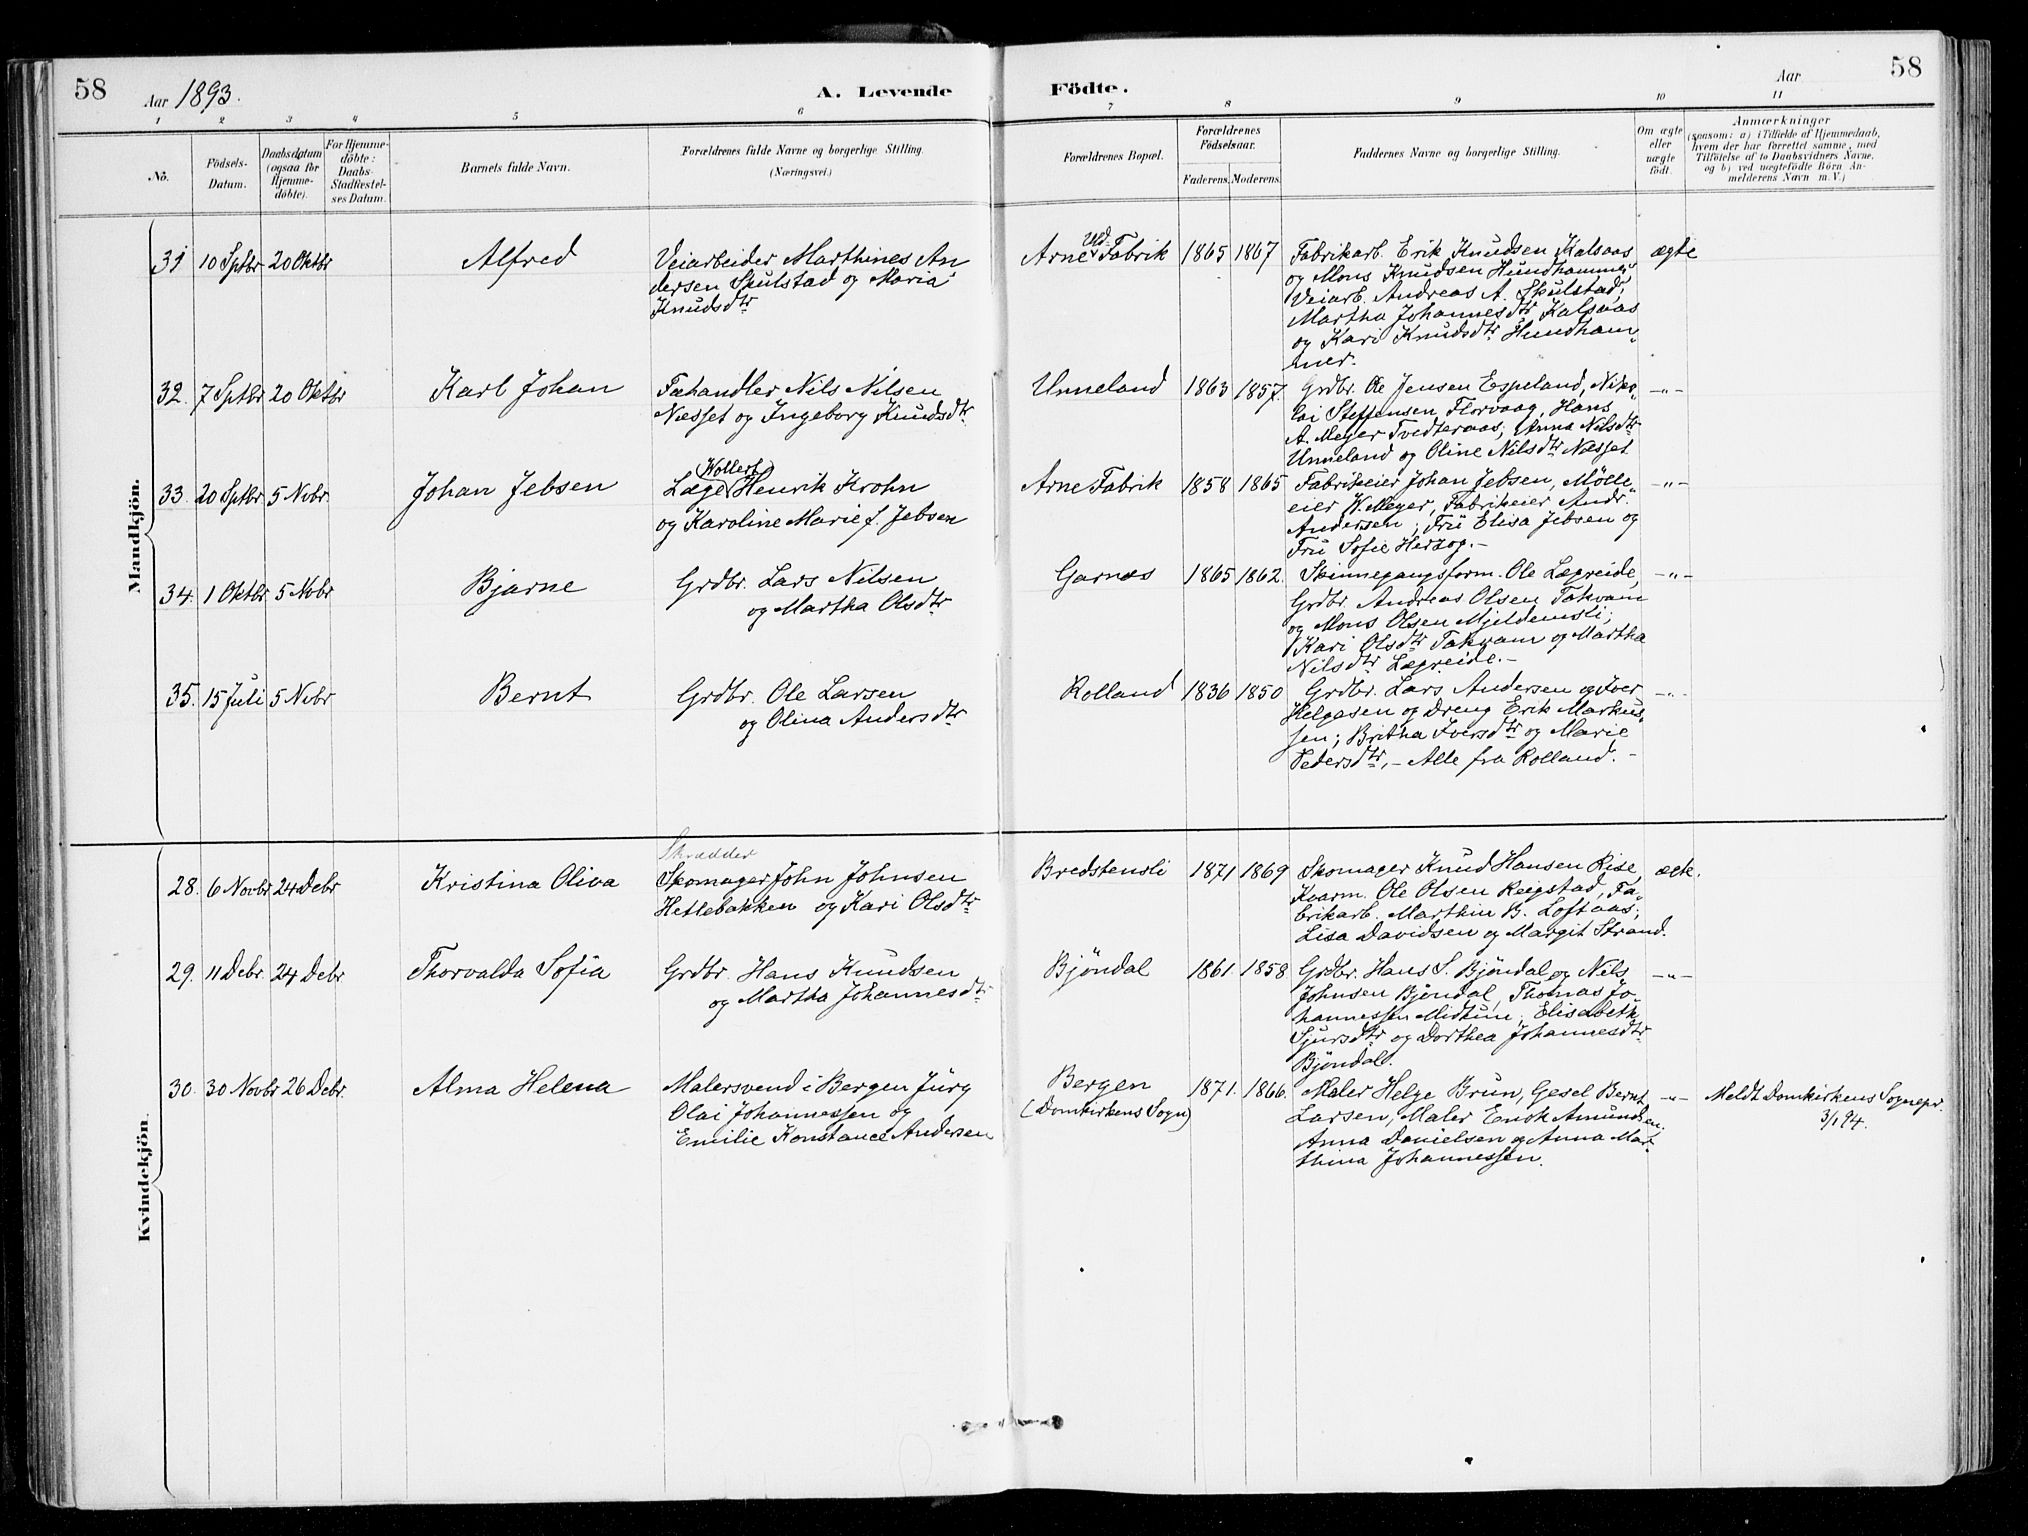 58
Aar 1893.
A. Levende
Födte.
Aar
58
1
2
3
4
5
6
7
8
9
10
11
No.
Födsels-
Datum.
Daabsdatum
(ogsaa for
Hjemme-
döbte).
For Hjemme-
döbte:
Daabs-
Stadfæstel-
ses Datum.
Barnets fulde Navn.
Forældrenes fulde Navne og borgerlige Stilling.
(Næringsvei.)
Forældrenes Bopæl.
Forældrenes
Födselsaar.
Faderens.
Moderens.
Faddernes Navne og borgerlige Stilling.
Om ægte
eller
uægte
födt.
Anmærkninger
(saasom: a) i Tilfælde af Hjemmedaab,
hvem der har forrettet samme, med
Tilföielse af to Daabsvidners Navne,
og b) ved uægtefödte Börn An-
melderens Navn m. V.)
Mandkjön.
31 10 Sptbr 20 Oktbr Alfred
Veiarbeider Marthines An
dersen Skulstad og Maria
Knudsdtr
Arne Uld Fabrik 1865 1867
Fabrikarb. Erik Knudsen Kalsaas
og Mons Knudsen Hundhammer,
Veiarb. Andreas A. Skulstad;
Martha Johannesdtr Kalsaas
og Kari Knudsdtr Hundham„
mer.
ægte
32. 7 Sptbr 20 Oktbr Karl Johan
Fæhandler Nils Nilsen
Næsset og Ingeborg Knudsdtr
Unneland 1863 1857.
Grdbr. Ole Jensen Espeland, Niko„
lai Steffensen Florvaag, Hans
A. Meyer Tvedteraas; Anna Nilsdtr
Unneland og Oline Nilsdtr Næsset
-„-
33. 20 Sptbr 5 Nvbr. Johan Jebsen
Læge Wollert Henrik Krohn
og Karoline Marie f. Jebsen
Arne Fabrik 1858 1865
Fabrikeier Johan Jebsen, Mølle„
eier W. Meyer, Fabrikeier Andr.
Andersen; Fru Elisa Jebsen og
Fru Sofie Herzog.-
-„-
34. 1 Oktbr 5 Nvbr Bjarne
Grdbr. Lars Nilsen
og Martha Olsdtr
Garnæs 1865 1862.
Skinnegangsform. Ole Lægreide,
Grdbr. Andreas Olsen Takvam
og Mons Olsen Mjeldemsli;
Kari Olsdtr Takvam og Martha
Nilsdtr Lægreide.-
-„-
35. 15 Juli 5 Nvbr Bernt
Grdbr. Ole Larsen
og Olina Andersdtr
Rolland 1836 1850
Grdbr. Lars Andersen og Iver
Helgesen og Dreng Erik Markus„
sen; Britha Iversdtr og Marie
Pedersdtr,- Alle fra Rolland.-
-„-
Kvindekjön.
28. 6 Novbr 24 Debr Kristina Oliva
Skrædder
Skomager John Johnsen
Hetlebakken og Kari Olsdtr
Bredstensli 1871 1869
Skomager Knud Hansen Rise,
Kvarm. Ole Olsen Reigstad, Fa„
brikarb. Marthin B. Loftaas;
Lisa Davidsen og Margit Strand.
ægte.
29. 11 Debr. 24 Debr. Thorvalda Sofia
Grdbr. Hans Knudsen
og Martha Johannesdtr
Bjöndal 1861. 1858
Grdbr. Hans S. Bjöndal og Nils
Johnsen Bjöndal, Thomas Jo„
hannessen Midtun; Elisabeth
Sjursdtr og Dorthea Johannesdtr
Bjöndal.
-„-
30. 30 Novbr 26 Debr. Alma Helena
Malersvend i Bergen Jürg
Olai Johannessen og
Emilie Konstance Andersen
Bergen
(Domkirkens Sogn)
1871. 1866.
Maler Helge Brun, Gesel Bernt
Larsen, Maler Enok Amundsen.
Anna Danielsen og Anna Mar„
thina Johannessen.
-„-
Meldt Domkirkens Sognepr.
3/1 94.